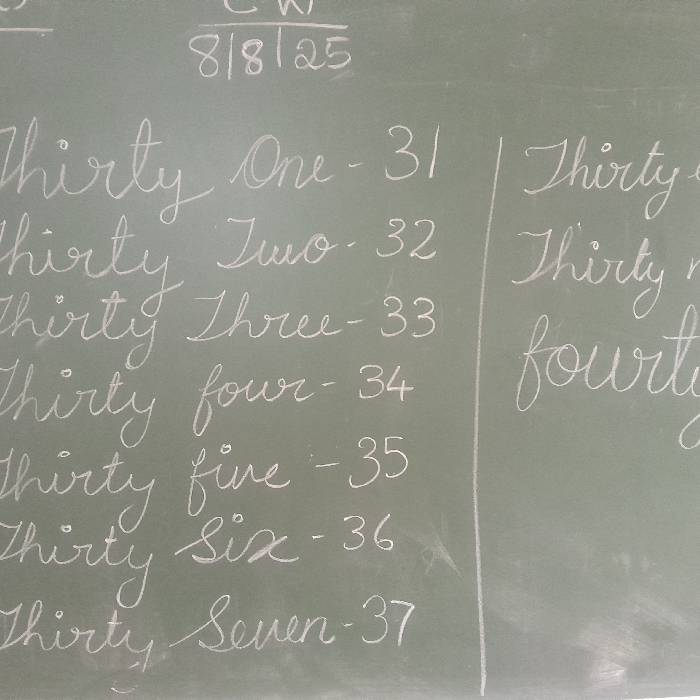 CW
8/8/25
Thirty One - 31
Thirty Two - 32
Thirty Three - 33
Thirty four - 34
Thirty five - 35
Thirty Six - 36
Thirty Seven - 37
Thirty
Thirty
fourty